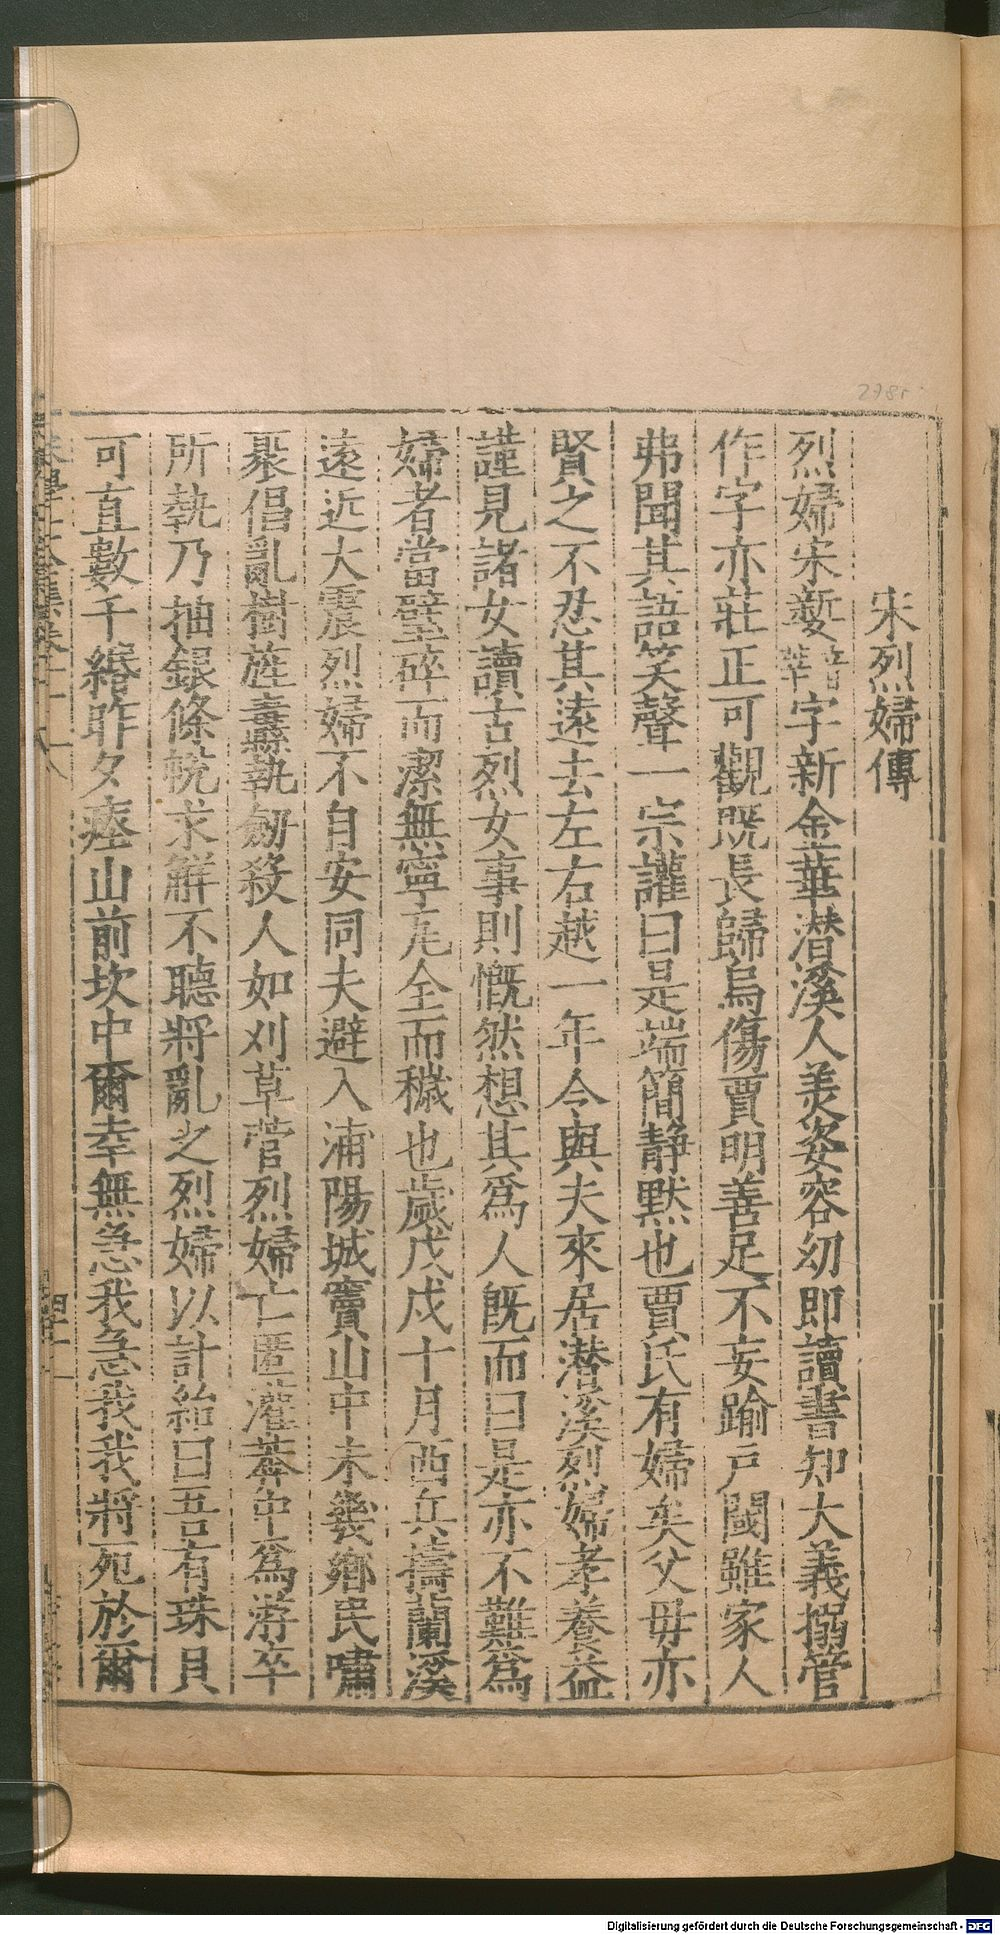 2785
宋烈婦傳
烈婦宋㜞𩎟音字新金華潛溪人美姿容幼即讀書知大義搦管
作字亦莊正可觀既長歸烏傷賈明善足不妄踰戶閾雖家人
弗聞其語笑聲一宗讙曰是端簡靜默也賈氏有婦矣父毋亦
賢之不忍其遠去左右越一年令與夫來居潛溪烈婦孝養益
謹見諸女讀古烈女事則慨然想其爲人既而曰是亦不難爲
婦者當璧碎而潔無寧瓦全而穢也歲戊戌十月西兵擣蘭溪
遠近大震烈婦不自安同夫避入浦陽城竇山中未幾鄉民嘯
聚倡亂樹旌纛縣執劒殺人如刈草菅烈婦亡匿灌莽中爲游卒
所執乃抽銀條帨求解不聽將亂之烈婦以計紿曰吾有珠貝
可直數千緡昨夕瘞山前坎中爾幸無急我急我我將死於爾
Digitalisierung gefördert durch die Deutsche Forschungsgemeinschaft - DFG